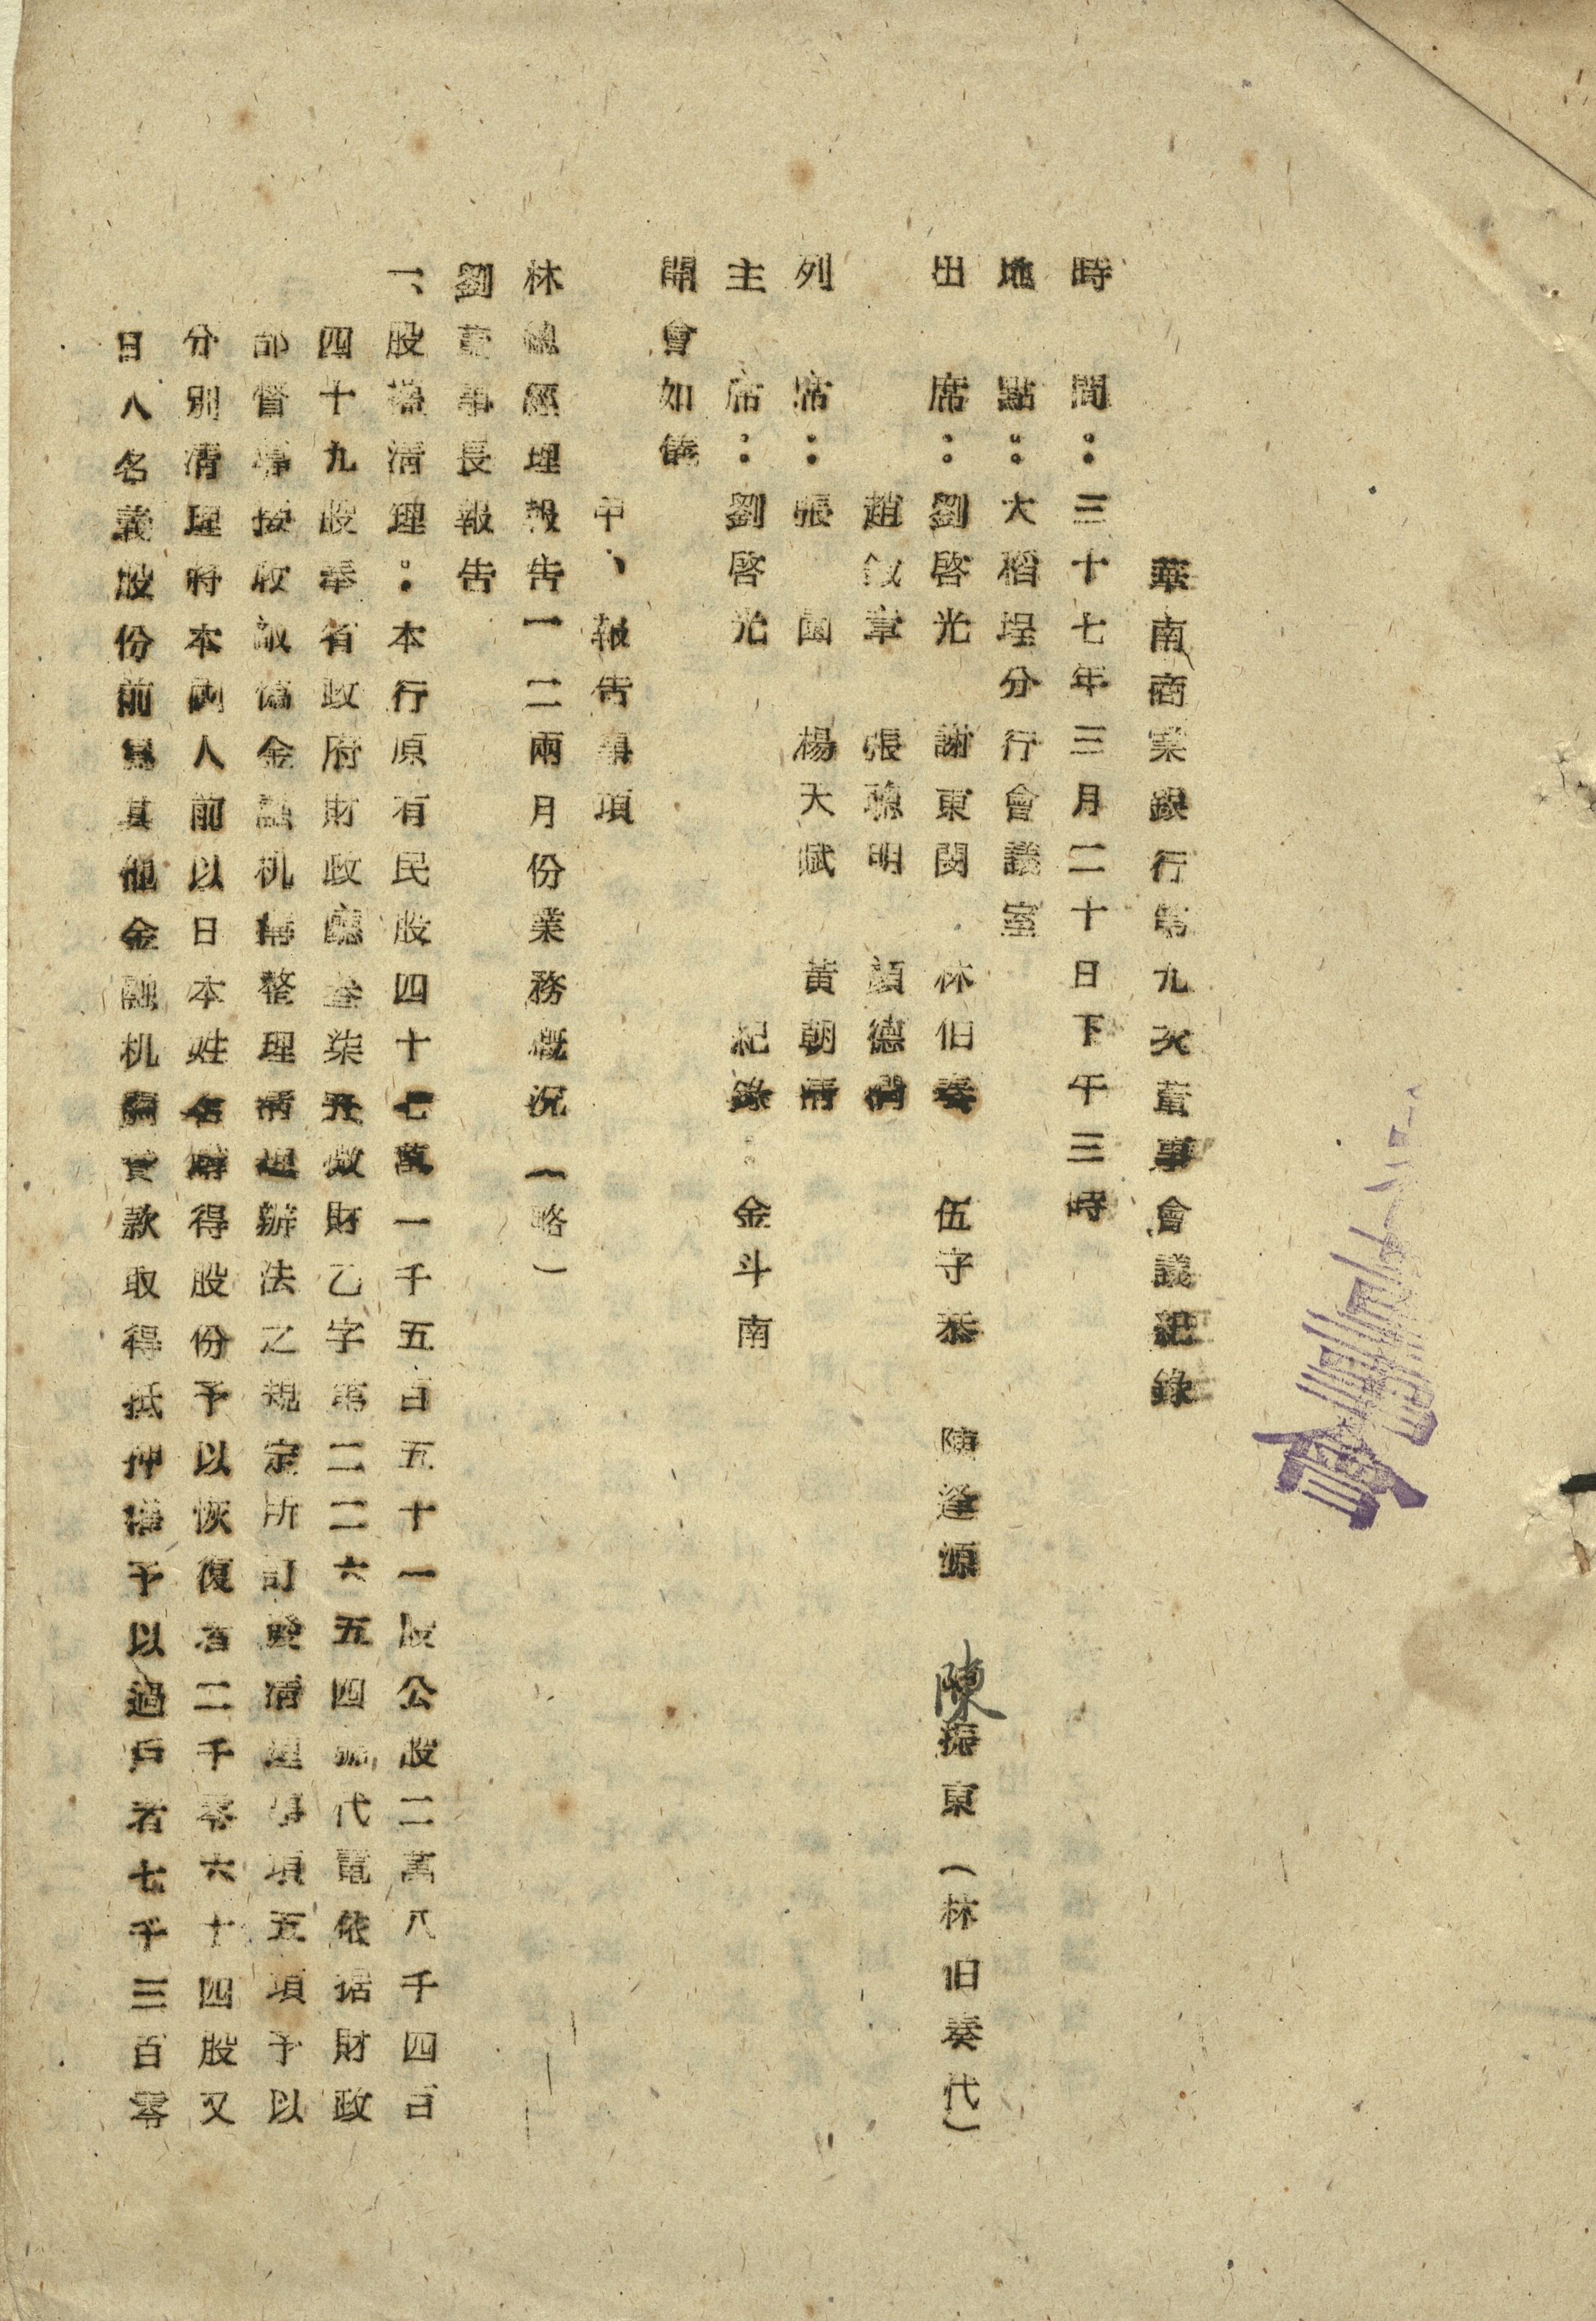 華南商業銀行第九次董事會議紀錄
時間：三十七年三月二十日下午三時
地點：大稻埕分行會議室
出席：劉啓光 謝東閔 林伯奏 伍守恭 陳逢源 陳振東（林伯奏代）
趙敘章 張聰明 顏德潤
列席：張園 楊天賦 黃朝清
主席：劉啓光 紀錄：金斗南
開會如儀
甲、報告事項
林總經理報告一二兩月份業務概況（略）
劉董事長報告
一、股權清理：本行原有民股四十七萬一千五百五十一股公股二萬八千四百
四十九股奉省政府財政廳叁柒丑微財乙字第二二六五四號代電依据財政
部督導接收敵偽金融机構整理清理辦法之規定所訂股權清理事項五項予以
分別清理將本國人前以日本姓名購得股份予以恢復者二千零六十四股又
日人名義股份前為其他金融机關貸款取得抵押權予以過戶者七千三百零